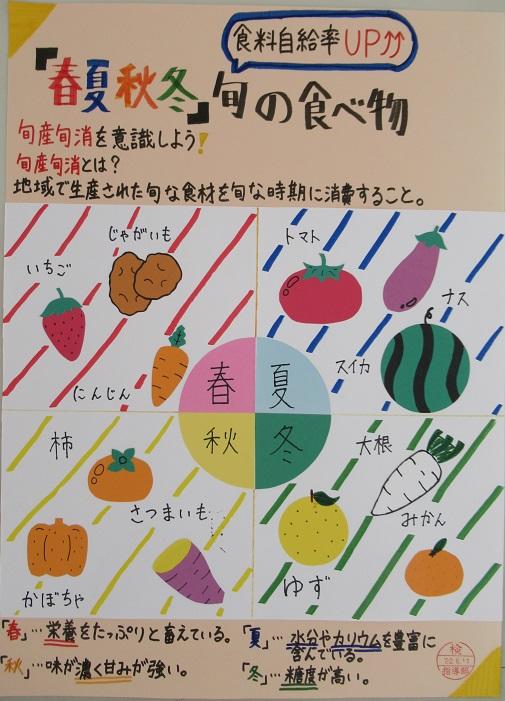 食料自給率UP⇈
『春夏秋冬』旬の食べ物
旬産旬消を意識しよう!
旬産旬消とは?
地域で生産された旬な食材を旬な時期に消費すること。
じゃがいも
いちご
にんじん
トマト
ナス
スイカ
春
夏
秋
冬
柿
さつまいも
かぼちゃ
大根
みかん
ゆず
「春」…栄養をたっぷりと蓄えている。
「夏」…水分やカリウムを豊富に
含んでいる。
「秋」…味が濃く甘みが強い。
「冬」…糖度が高い。
検
指導部